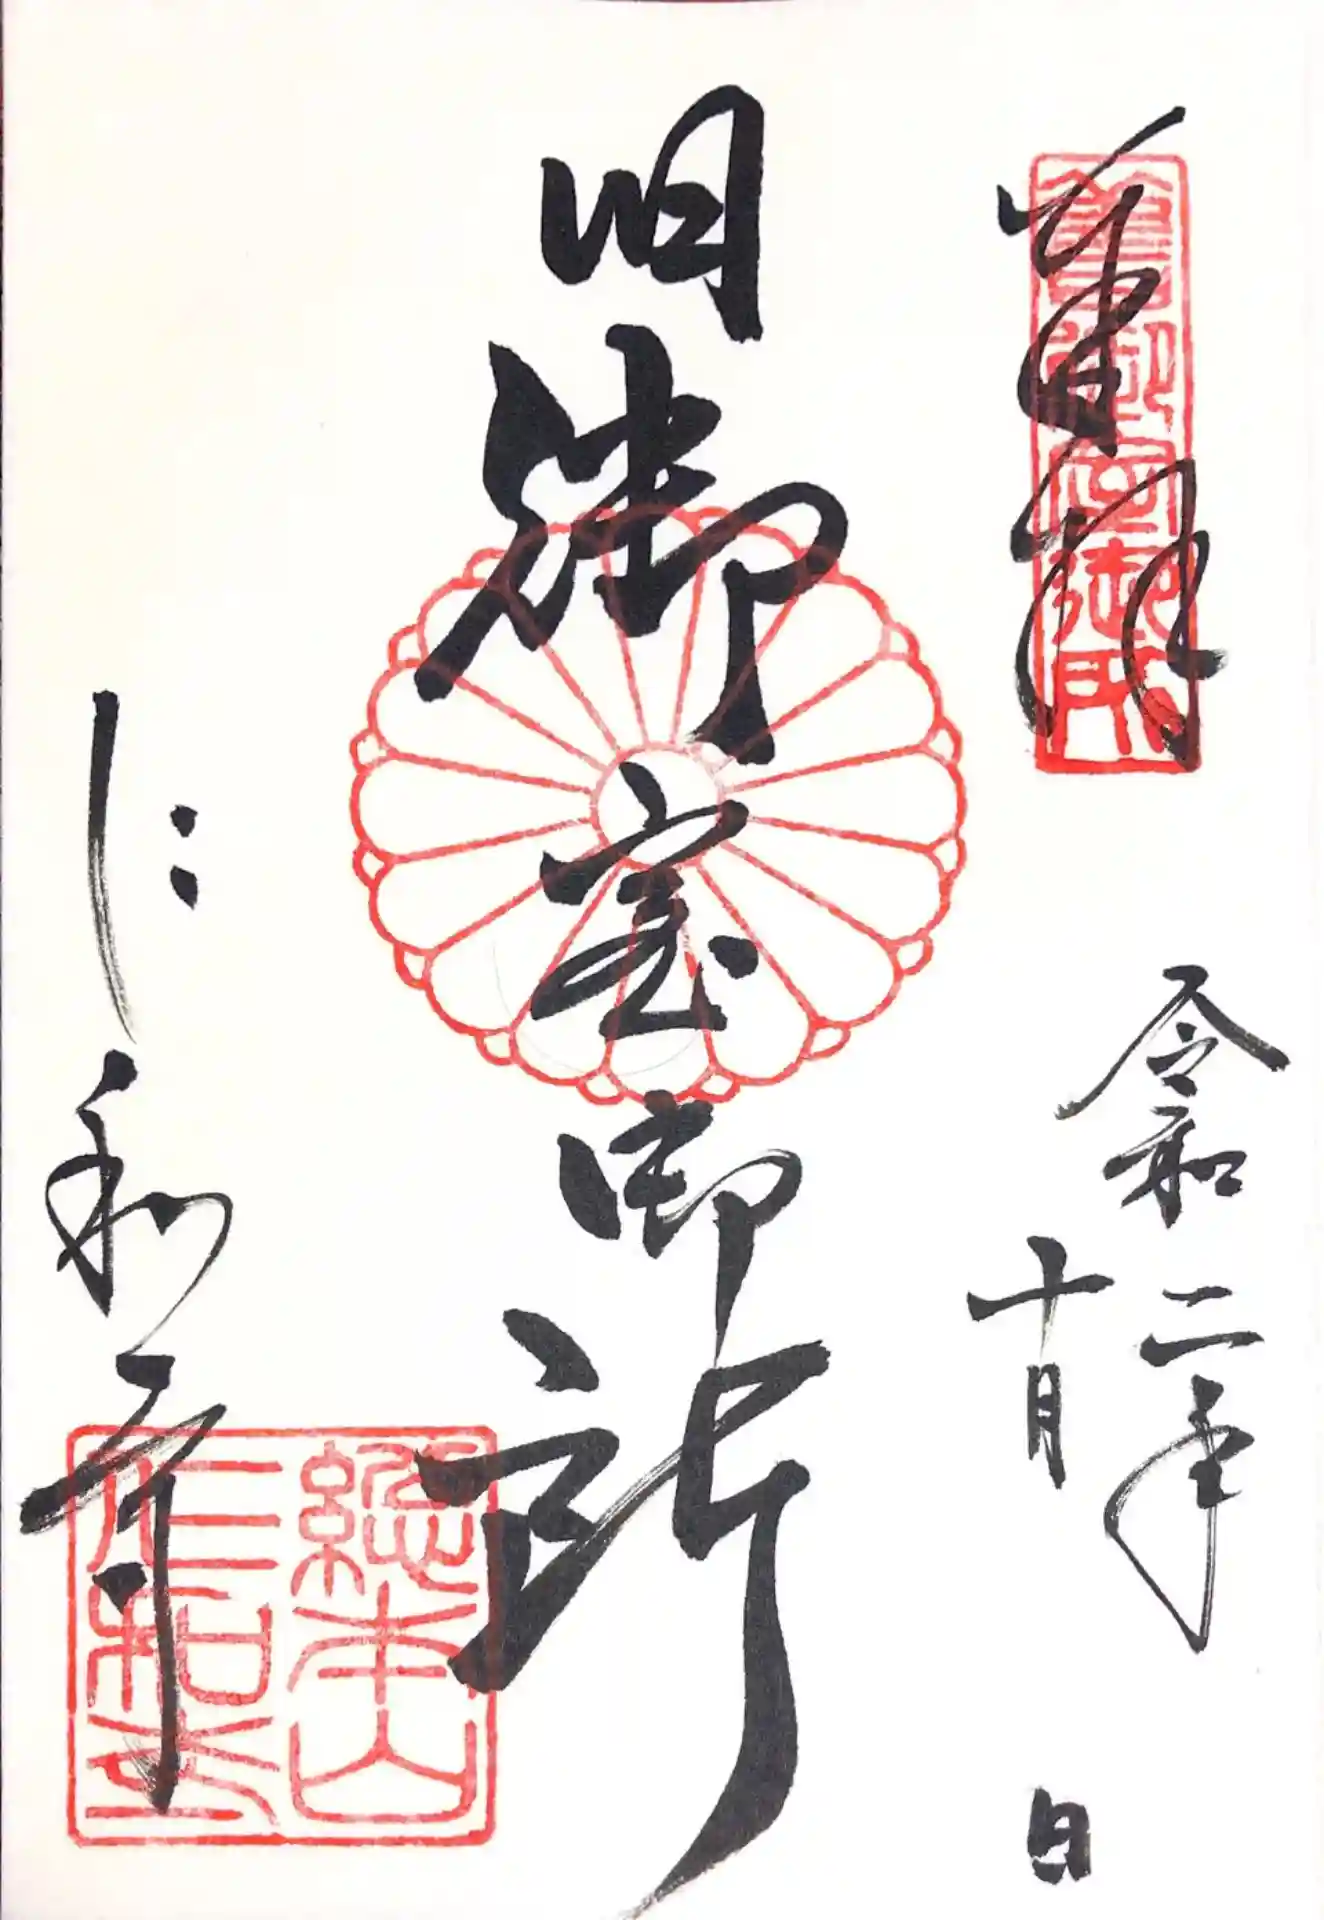 奉拝
令和二年
十月 日
旧御室御所
仁和寺
總本山
仁和寺